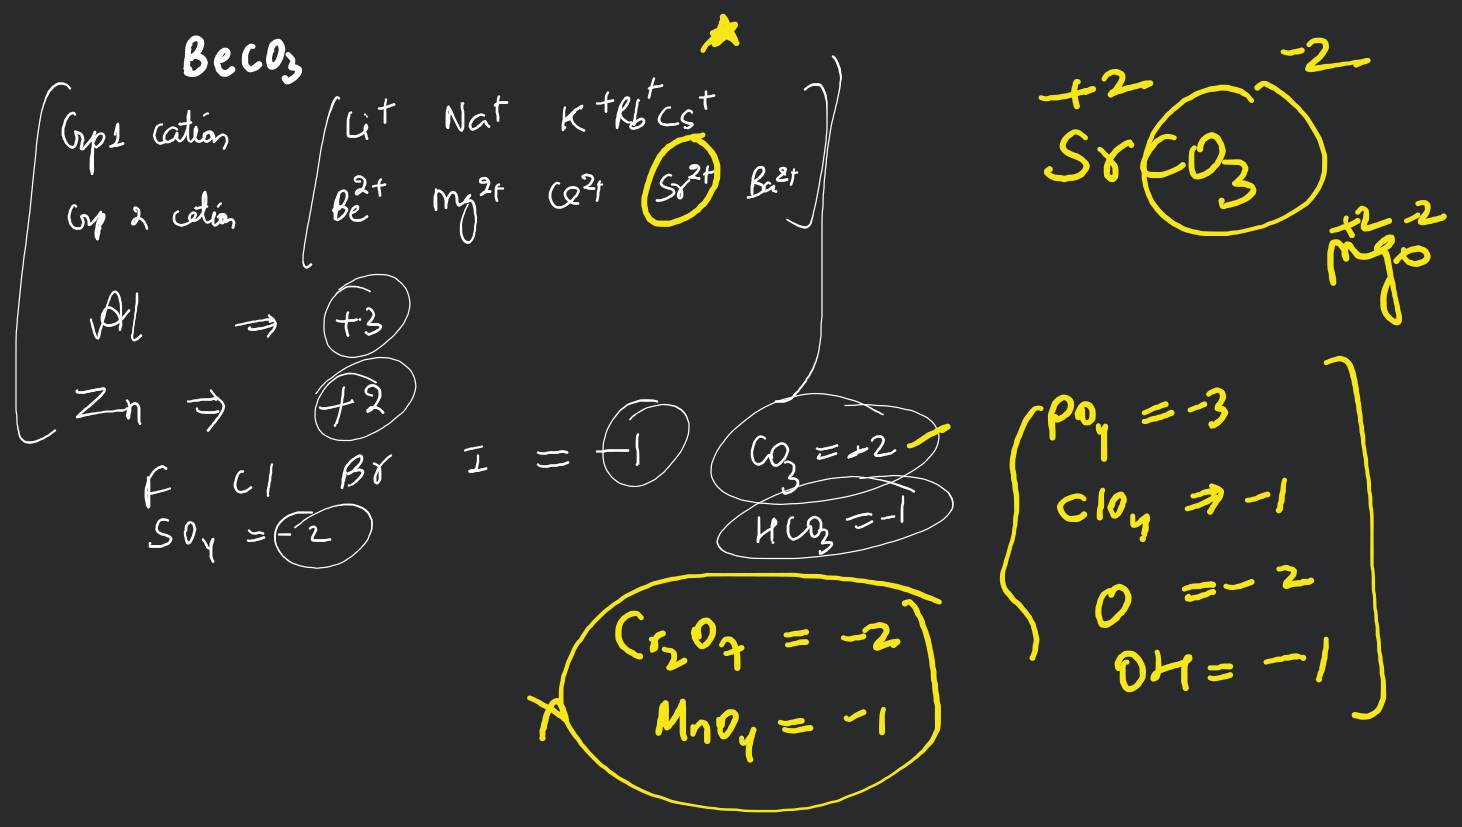 BeCO3
Grp1 cation [ Li+ Na+ K+ Rb+ Cs+
Grp 2 cation Be2+ Mg2+ Ca2+ Sr2+ Ba2+ ]
Al ⇒ +3
Zn ⇒ +2
F Cl Br I = -1
SO4 = -2
CO3 = -2
HCO3 = -1
Cr2O7 = -2
MnO4 = -1
+2 -2
SrCO3
+2 -2
MgO
PO4 = -3
ClO4 ⇒ -1
O = -2
OH = -1